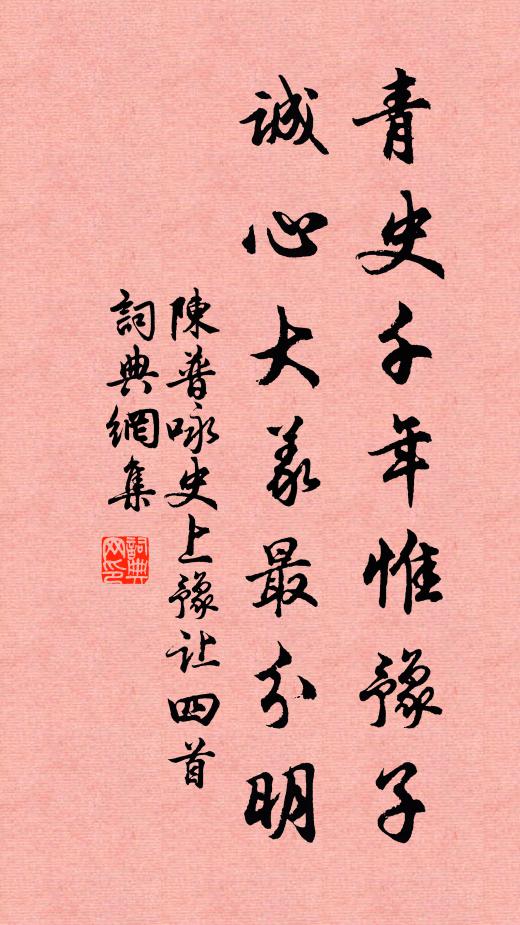 青史千年惟豫子
誠心大义最分明
陳普咏史上豫让四首
詞典網集
詞典网印